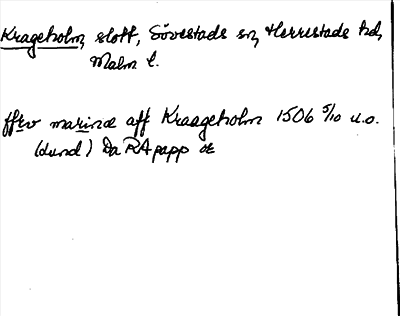 Krageholm, slott, Sövestads sn, Herrestads hd,
Malm l.
ffrv marinæ aff Kraageholm 1506 5/10 u.o.
(Lund) Da RA papp or